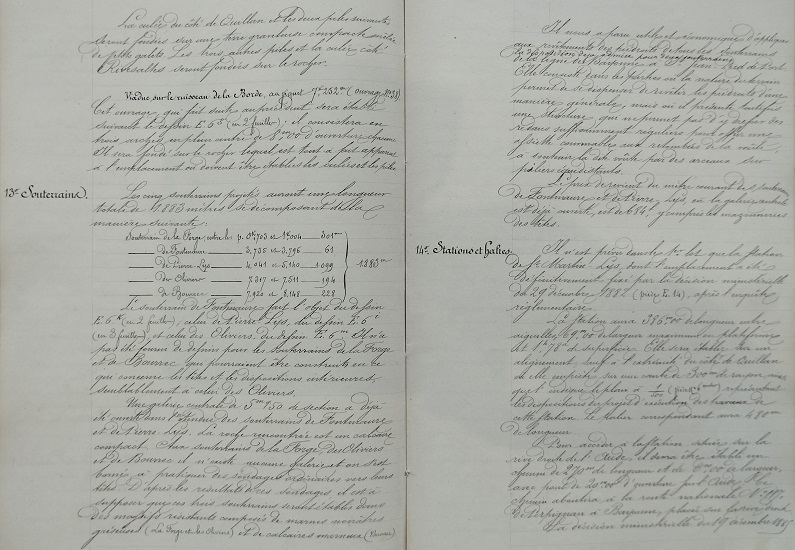 La culée du côté de Quillan et les deux piles suivantes
seront fondées sur une terre graveleuse compacte mêlée
de petits galets. Les trois autres piles et la culée côté
Rivesaltes seront fondées sur le rocher.
Viaduc sur le ruisseau de la Borde, au piquet 7k252m (ouvrage No 58)
Cet ouvrage, qui fait suite au précédent sera établi
suivant le dessin E. 6 (en 2 feuilles); il consistera en
trois arches en plein cintre de 8m00 d'ouverture chacune
Il sera fondé sur le rocher lequel est tout à fait apparent
à l'emplacement où doivent être établies les culées et les piles
13o Souterrains.
Les cinq souterrains projetés auront une longueur
totale de 1.883 mètres se décomposant de la
manière suivante:
Souterrain de la Forge, entre les p. 0k703 et 1k004 301m
de Fontmaure 3,735 et 3,796 61
de Pierre Lys 4,041 et 5,140 1099
des Oliviers 7.317 et 7.511 194
de Bourrec 7,920 et 8,148 228
1883m
Le souterrain de Fontmaure fait l'objet du dessin
E. 6 (en 2 feuilles), celui de Pierre Lys, du dessin E. 6
(en 3 feuilles), et celui des Oliviers, du dessin E. 6. Il n'a
pas été fourni de dessins pour les souterrains de la Forge
et de Bourrec qui pourraient être construits en ce
qui concerne les têtes et les dispositions intérieures,
semblablement à celui des Oliviers.
Une galerie centrale de 5m50 de section a déjà
été ouverte dans l'étendue des souterrains de Fontmaure
et de Pierre Lys. La roche rencontrée est un calcaire
compact. Aux souterrains de la Forge, des Oliviers
et de Bourrec il n'existe aucune galerie et on s'est
borné à pratiquer des sondages ordinaires vers leurs
têtes. D'après les résultats de ces sondages il est à
supposer que ces trois souterrains seront établis dans
des massifs résistants composés de marnes noirâtres
gréseuses (La Forge et les Oliviers) et de calcaires marneux (Bourrec)
Il nous a paru utile et économique d'appliquer
aux revêtements des piédroits de tous les souterrains
la disposition déjà admise pour deux souterrains
de la ligne de Bayonne à St Jean Pied de Port.
Elle consiste dans les parties où la nature du terrain
permet de se dispenser de revêtir les piédroits d'une
manière générale, mais où il présente toutefois
une structure qui ne permet pas d'y disposer des
redans suffisamment réguliers pour offrir une
assiette convenable aux retombées de la voûte,
à soutenir la dite voûte par des arceaux sur
piliers équidistants.
Le prix de revient du mètre courant des souterrains
de Fontmaure et de Pierre Lys, où la galerie centrale
est déjà ouverte, est de 684f y compris les maçonneries
des têtes.
14o Stations et haltes
Il n'est prévu dans le 1er lot que la station
de St Martin-Lys, dont l'emplacement a été
définitivement fixé par la décision ministérielle
du 29 décembre 1882 (pièce E. 14), après l'enquête
réglementaire.
La station aura 386m00 de longueur entre
aiguilles, 69m00 de largeur maximum de plateforme
et de superficie. Elle sera établie sur un
alignement sauf à l'extrémité du côté de Quillan
où elle empiète sur une courbe de 300m de rayon, ainsi
que l'indique le plan à 1/500 (pièce) représentant
les dispositions du projet d'exécution des travaux de
cette station. Le palier correspondant aura 480m
de longueur
Pour accéder à la station située sur la
rive droite de l'Aude, il devra être établi un
chemin de 270m de longueur et de 6m00 de largeur,
avec pont de 20m00 d'ouverture sur l'Aude. Ce
chemin aboutira à la route nationale No 117,
de Perpignan à Bayonne, placée sur la rive gauche
La décision ministérielle du 19 décembre 1885